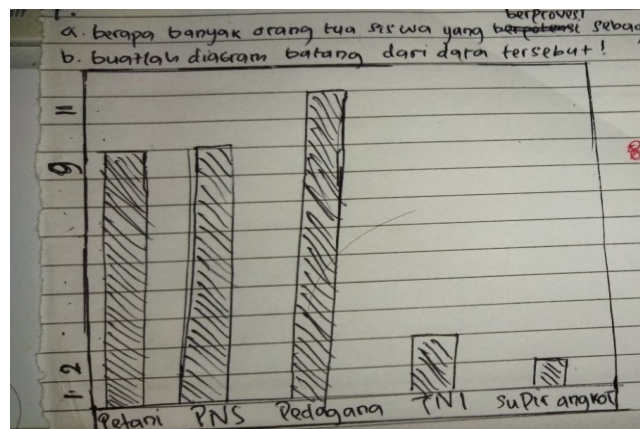 berprovesi
a. berapa banyak orang tua siswa yang berpotensi sebag
b. buatlah diagram batang dari data tersebut!
11
9
2
1
Petani PNS Pedagang TNI supir angkot